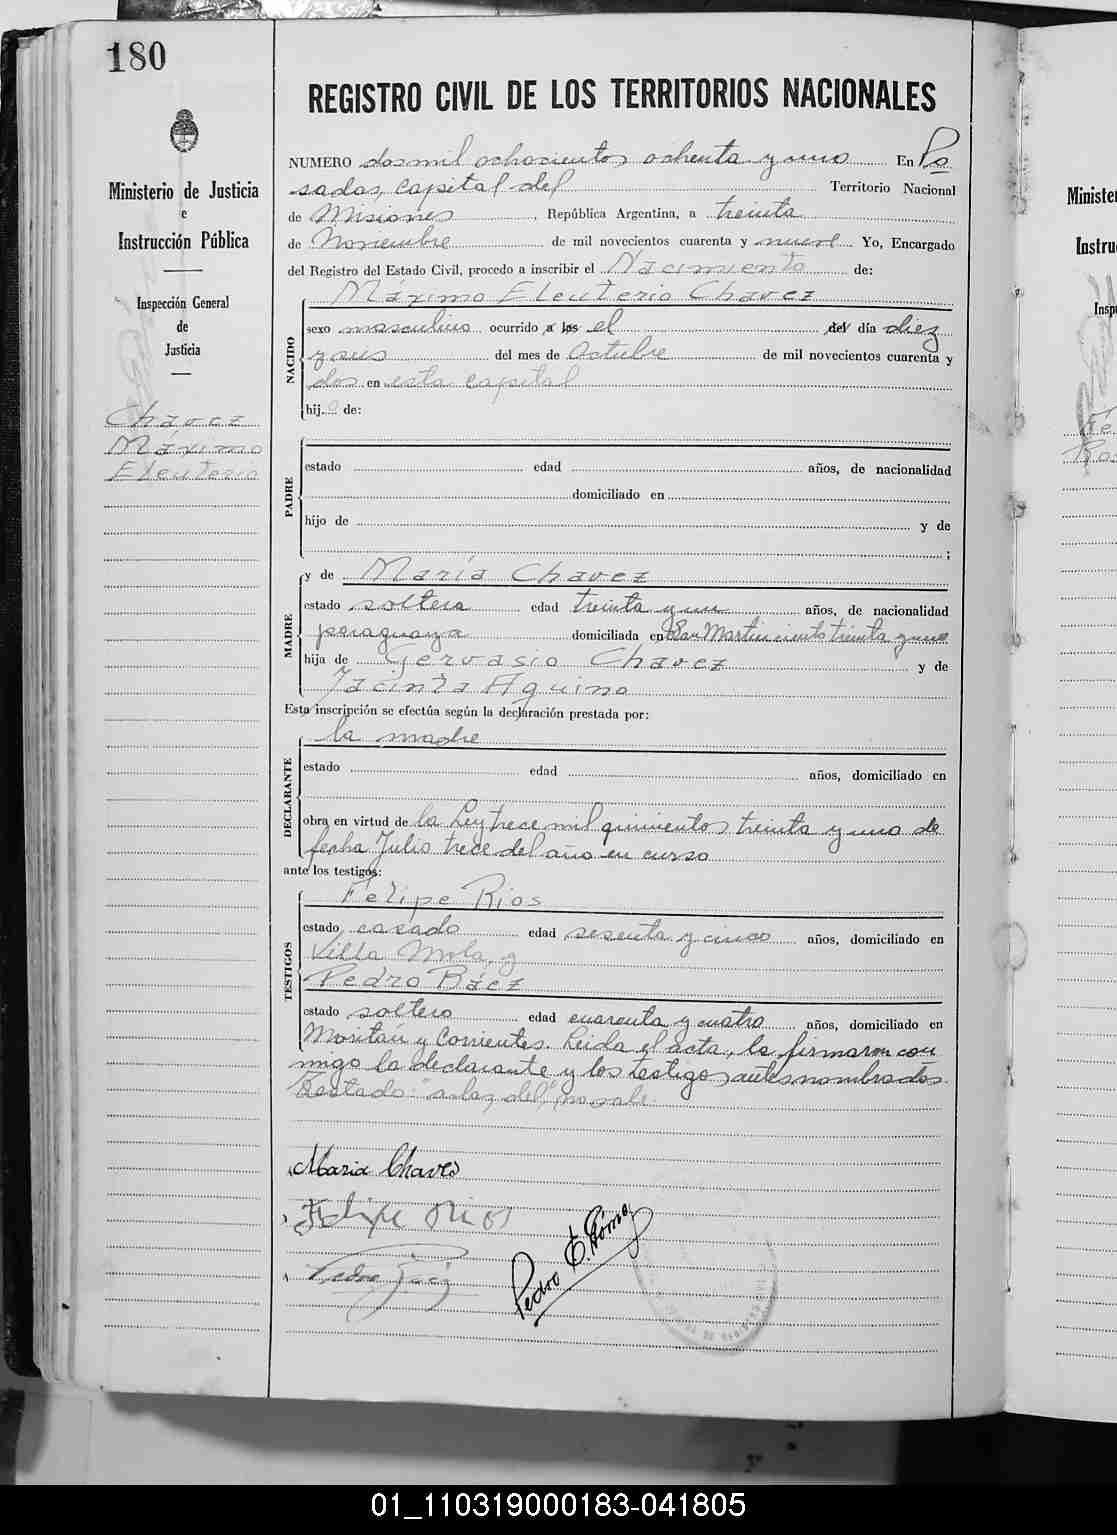 180
Ministerio de Justicia
e
Instrucción Pública
Inspección General
de
Justicia
Chavez
Máximo
Eleuterio
REGISTRO CIVIL DE LOS TERRITORIOS NACIONALES
NUMERO dos mil ochocientos ochenta y uno En Po
sadas, capital del Territorio Nacional
de Misiones, República Argentina, a treinta
de Noviembre de mil novecientos cuarenta y nueve Yo, Encargado
del Registro del Estado Civil, procedo a inscribir el Nacimiento de:
Máximo Eleuterio Chavez
NACIDO
sexo masculino ocurrido a las el del día diez
y seis del mes de Octubre de mil novecientos cuarenta y
dos en esta capital
hijo de:
PADRE
estado edad años, de nacionalidad
domiciliado en
hijo de y de
;
y de María Chavez
MADRE
estado soltera edad treinta y un años, de nacionalidad
paraguaya domiciliada en San Martin ciento treinta y nueve
hija de Gervasio Chavez y de
Jacinta Aquino
Esta inscripción se efectúa según la declaración prestada por:
la madre
DECLARANTE
estado edad años, domiciliado en
obra en virtud de la Ley trece mil quinientos treinta y uno de
fecha Julio trece del año en curso
ante los testigos:
Felipe Rios
TESTIGOS
estado casado edad sesenta y cinco años, domiciliado en
Villa Mola, y
Pedro Báez
estado soltero edad cuarenta y cuatro años, domiciliado en
Moritán y Corrientes. Leida el acta, la firmaron con
migo la declarante y los testigos antes nombrados.
Testado: "a las, del", no vale
Maria Chaves
Felipe Rios
Pedro Báez
Pedro E. Gómez
Ministe
Instru
Insp
01_110319000183-041805